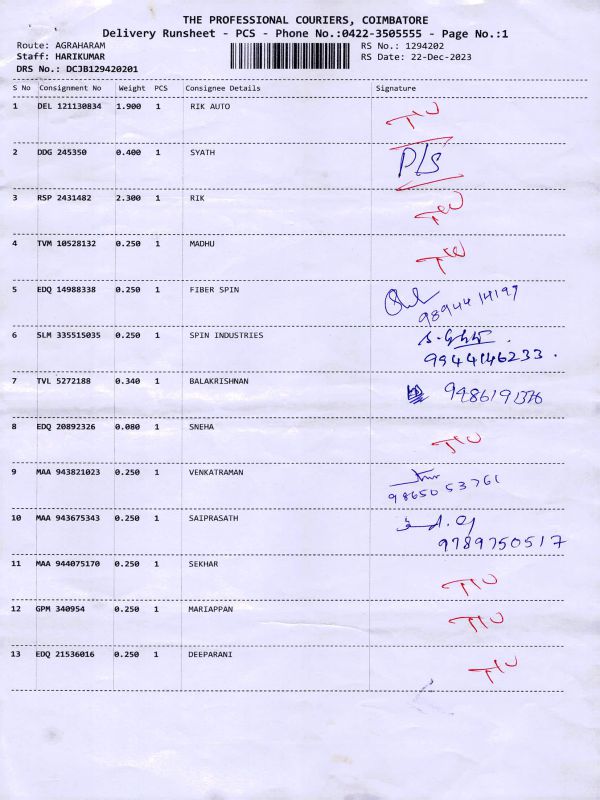 THE PROFESSIONAL COURIERS, COIMBATORE
Delivery Runsheet - PCS - Phone No.:0422-3505555 - Page No.:1
Route: AGRAHARAM RS No.: 1294202
Staff: HARIKUMAR RS Date: 22-Dec-2023
DRS No.: DCJB129420201
S No Consignment No Weight PCS Consignee Details Signature
1 DEL 121130834 1.900 1 RIK AUTO
2 DDG 245350 0.400 1 SYATH P/S
3 RSP 2431482 2.300 1 RIK
4 TVM 10528132 0.250 1 MADHU
5 EDQ 14988338 0.250 1 FIBER SPIN
9894414197
6 SLM 335515035 0.250 1 SPIN INDUSTRIES
9944146233.
7 TVL 5272188 0.340 1 BALAKRISHNAN
8 EDQ 20892326 0.080 1 SNEHA
9 MAA 943821023 0.250 1 VENKATRAMAN
9865053761
10 MAA 943675343 0.250 1 SAIPRASATH
9789750517
11 MAA 944075170 0.250 1 SEKHAR
12 GPM 340954 0.250 1 MARIAPPAN
13 EDQ 21536016 0.250 1 DEEPARANI